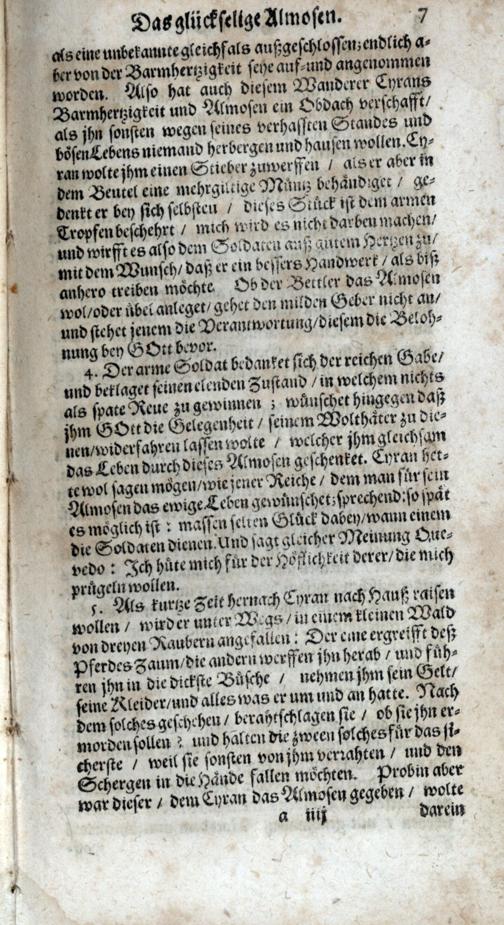 Das glückselige Almosen. 7
als eine unbekannte gleichfals außgeschlossen; endlich a-
ber von der Barmhertzigkeit seye auf- und angenommen
worden. Also hat auch diesem Wanderer Cyrans
Barmhertzigkeit und Almosen ein Obdach verschafft/
als jhn sonsten wegen seines verhassten Standes und
bösen Lebens niemand herbergen und hausen wollen. Cy-
ran wolte jhm einen Stieber zuwerffen / als er aber in
dem Beutel eine mehrgültige Müntz behändiget / ge-
denkt er bey sich selbsten / dieses Stück ist dem armen
Tropfen beschehrt / mich wird es nicht darben machen/
und wirfft es also dem Soldaten auß gutem Hertzen zu/
mit dem Wunsch/ daß er ein bessers Handwerk / als biß
anhero treiben möchte. Ob der Bettler das Almosen
wol/oder übel anleget/ gehet den milden Geber nicht an/
und stehet jenem die Verantwortung/diesem die Beloh-
nung bey GOtt bevor.
4. Der arme Soldat bedanket sich der reichen Gabe/
und beklaget seinen elenden Zustand / in welchem nichts
als spate Reue zu gewinnen ; wünschet hingegen daß
jhm GOtt die Gelegenheit / seinem Wolthäter zu die-
nen/widerfahren lassen wolte / welcher jhm gleichsam
das Leben durch dieses Almosen geschenket. Cyran het-
te wol sagen mögen/wie jener Reiche / dem man für sein
Almosen das ewige Leben gewünschet; sprechend: so spät
es möglich ist : massen selten Glück dabey/wann einem
die Soldaten dienen. Und sagt gleicher Meinung Que-
vedo : Ich hüte mich für der Höflichkeit derer/die mich
prügeln wollen.
5. Als kurtze Zeit hernach Cyran nach Hauß raisen
wollen / wird er unter Wegs / in einem kleinen Wald
von dreyen Raubern angefallen : Der eine ergreifft deß
Pferdes Zaum/die andern werffen jhn herab / und füh-
ren jhn in die dickste Büsche / nehmen jhm sein Gelt/
seine Kleider/und alles was er um und an hatte. Nach
dem solches geschehen / berahtschlagen sie / ob sie jhn er-
morden sollen ? und halten die zween solches für das si-
cherste / weil sie sonsten von jhm verrahten / und den
Schergen in die Hände fallen möchten. Probin aber
war dieser / dem Cyran das Almosen gegeben / wolte
a iiij darein